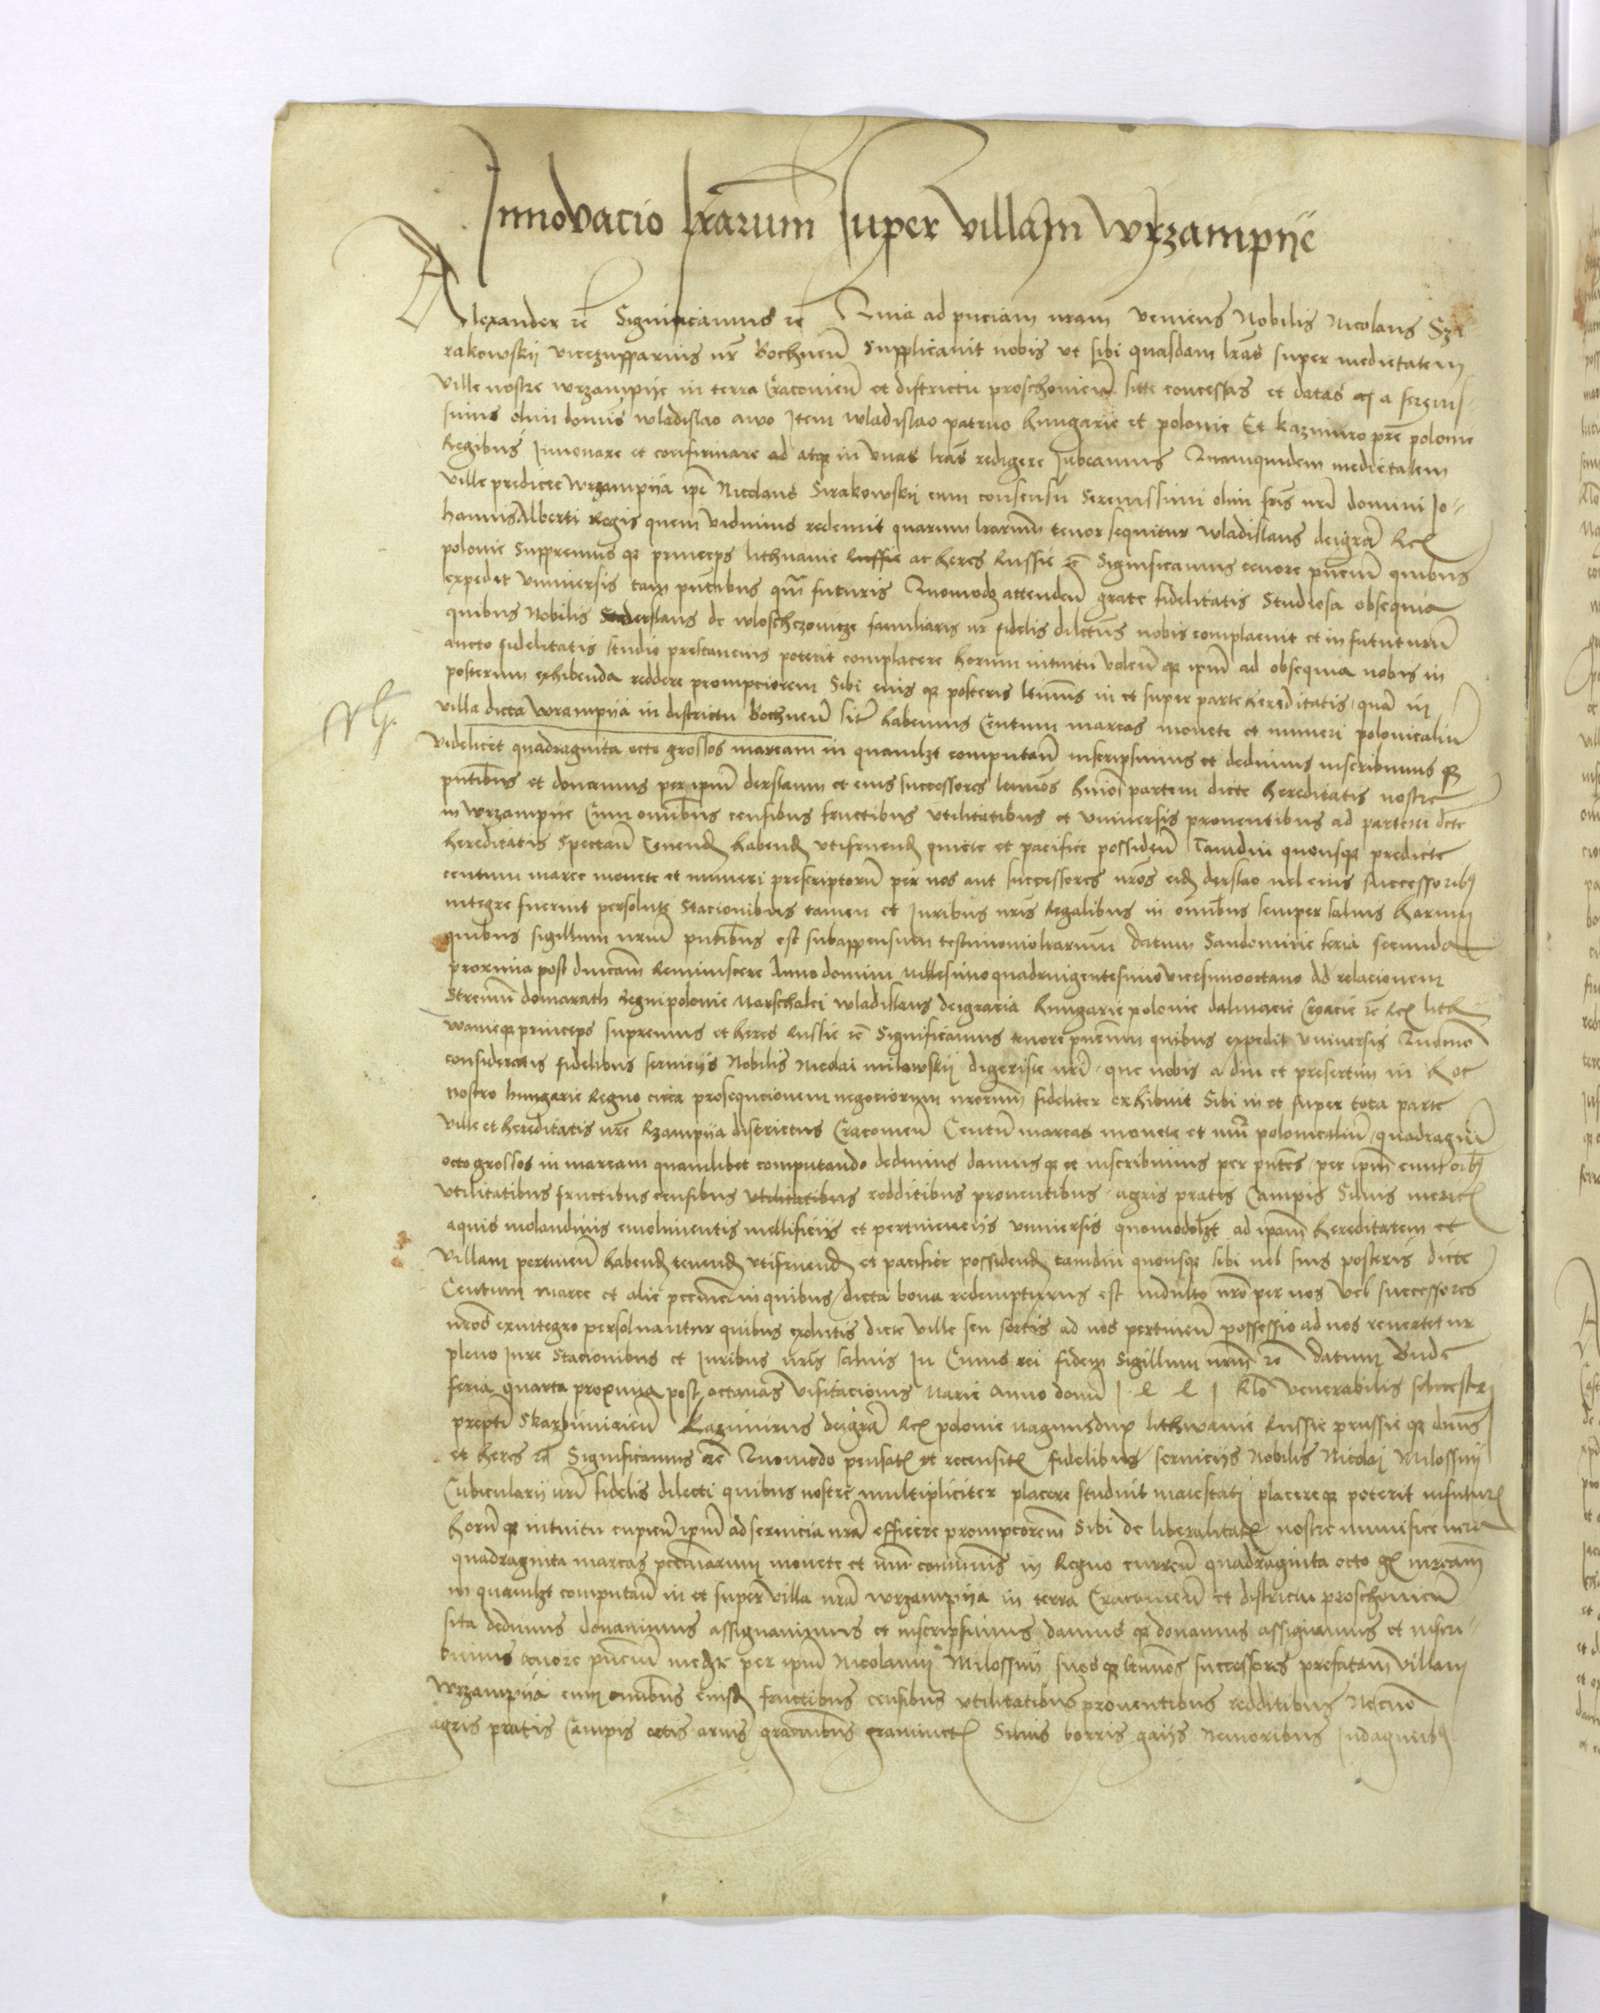 Innovacio lrarum super villam wrzampÿe
Alexander rc̃ Significamus rc̃ Quia ad pnciam nram veniens Nobilis Nicolaus Sza
rakowskij vicezupparius nr̃ Bochnen̄ Supplicavit nobis vt sibi quasdam lras super medietatem
ville nostre wrzampije in terra Cracovien̄ et districtu proschovien̄ site concessas et datas a serenis
simis olim domis wladislao awo Item wladislao patruo hungarie et polonie Et kazimiro pre polonie
Regibus Innovare et confirmare ad atq̨ in vnas lras redigere Iubeamus Quamquidem medietatem
ville predicte wrzampija ipe Nicolaus Sirakowskij cum consensu Serenissimi olim fris nri domini Jo
hannis Alberti Regis quem vidimus redemit quarum lrarum tenor sequitur wladislaus deigra Rex
polonie Suppremus q̨ princeps lithuanie Russie ac heres Russie rc̃ Significamus tenore pncium quibus
expedit vniversis tam pntibus qm̄ futuris Quomodo attenden̄ grate fidelitatis Studiosa obsequia
quibus Nobilis derslaus de wloschczowicze familiaris nr̃ fidelis dilectus nobis complacuit et in fututurū
aucto fidelitatis studio prestancius poterit complacere horum intuitu volen̄ q̨ ipm̄ ad obsequia nobis in
posterum exhibenda reddere prompciorem Sibi eius q̨ posteris ltimis in et super parte hereditatis quā in
villa dicta wrampija in districtu Bochnen̄ sit̄ habemus Centum marcas monete et numeri polonicaliū
videlicet quadraginta octo grossos marcam in quamlzt computan̄ inscripsimus et dedimus inscribimus q̨
pntibus et donamus per ipm̄ derslaum et eius successores ltimos huiōi partem dicte hereditatis nostre
in wrzampije Cum omibus censibus fructibus vtilitatibus et vniversis proventibus ad partem dcte
hereditatis Spectan̄ tenend habend vtifruend quiete et pacifice possiden̄ Tamdiu quousq̨ predicte
centum marce monete et numeri prescriptorū per nos aut successores nros eid derslao vel eius successoribq̨
integre fuerint persolute Stacionibus tamen et Iuribus nris Regalibus in omibus semper salvis harum
quibus sigillum nrm̄ pntibus est subappensum testimonio lrarum datum Sandomirie feria secunda
proxima post dnicam Reminiscere Anno domini Millesimo quadringentesimo vicesimooctavo Ad relacionem
Strenui domarath Regni polonie Marschalci wladislaus deigracia hungarie polonie dalmacie Croacie rc̃ Rex lith
wanieq̨ princeps supremus et heres Russie rc̃ Significamus tenore pncium quibus expedit vniversis Quomō
consideratis fidelibus servicijs Nobilis Nicolai milowskij digerisie nri que nobis a diu et presertim in hoc
nostro hungarie Regno circa prosequcionem negociorum nrorum fideliter exhibuit Sibi in et super tota parte
ville et hereditatis nre Rzampija districtus Cracovien̄ Centū marcas monete et nūi polonicaliū quadragin
octo grossos in marcam quamlibet computando dedimus damus q̨ et inscribimus per pntes per ipm cum oibq̨
vtilitatibus fructibus censibus vtilitatibus redditibus proventibus agris pratis Campis Siluis mericis
aquis molandinis emolumentis mellificiis et pertinencijs vniversis quomodolzt ad ipam hereditatem et
villam pertinen̄ habend tenend vtifruend et pacifice possidend tamdiu quousq̨ sibi vel suis posteris dicte
Centum marce et alie pccunie in quibus dicta bona redempturus est indulto nro per nos vel successores
nros exintegro persolvantur quibus exolutis dicte ville seu sortis ad nos pertinen̄ possessio ad nos revertetur
pleno Iure Stacionibus et Iuribus nris salvis In Cuius rei fidem Sigillum nrm̄ rc̃ datum Bude
feria quarta proxima post octavas visitacionis Marie Anno domi Rlo venerabilis silvestri
prepti Skarbimirien̄ Kazimirus deigra Rex polonie magnusdux lithwanie Russie prussie q̨ dnus
et heres rc̃ Significamus rc̃ Quomodo pensatis et recensitis fidelibus servicijs Nobilis Nicolaj Milossij
Cubicularij nri fidelis dilecti quibus nostre multipliciter placere studuit maiestati placereq̨ poterit infuturū
horū q̨ intuitu cupien̄ ipm̄ ad servicia nra efficere prompciorem Sibi de liberalitate nostre munificencia
quadraginta marcas pccuniarum monete et nūi comunis in Regno curren̄ quadraginta octo gs marcam
in quamlzt computan̄ in et super villa nra wrzampija in terra Cracovien̄ et districtu proschovien̄
sita dedimus donavimus assignavimus et inscripsimus damus q̨ donamus assignamus et inscri
bimus tenore pncium mediante per ipm̄ Nicolaum Milossij suos q̨ ltimos successores prefatam villam
wrzampija cum omibus eiusd fructibus censibus vtilitatibus proventibus redditibus Necnō
agris pratis Campis ortis arvis graminibus graminetis Siluis borris gaijs Nemoribus Indaginibq̨